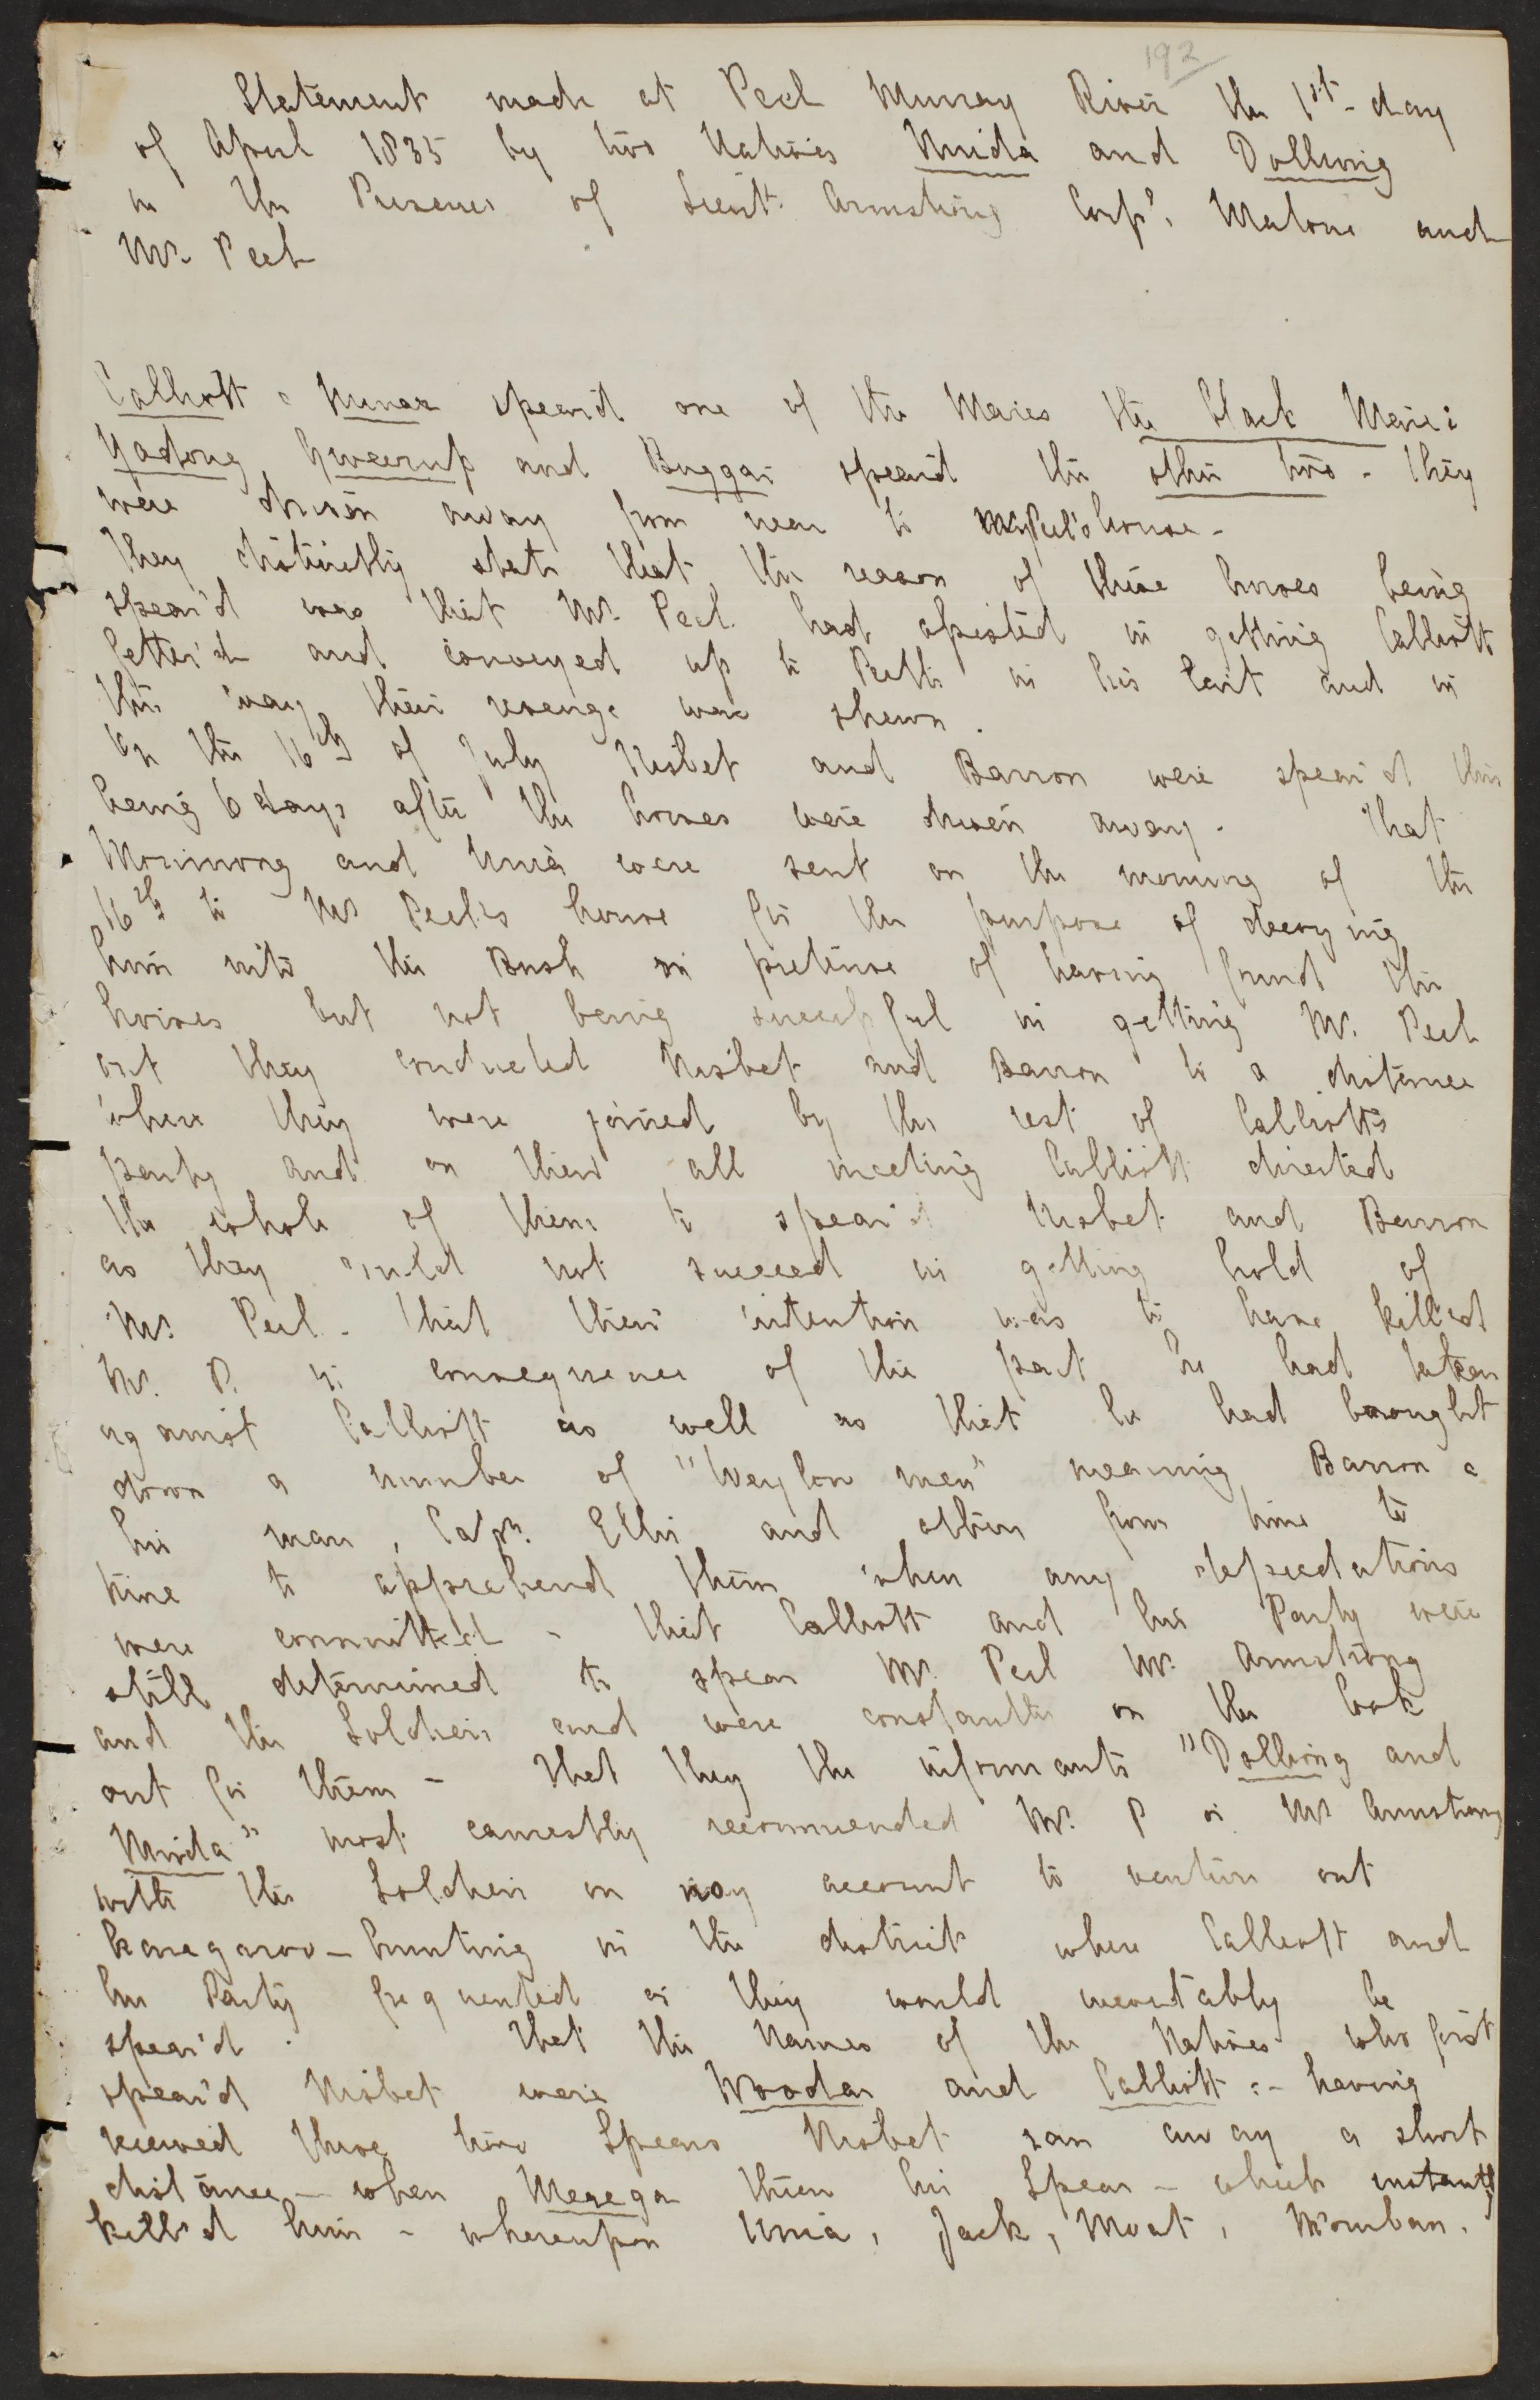 192
Statement made at Peel Murray River the 1st day
of April 1835 by two Natives Mnida and Dollung
in the Presence of Lieut. Armstrong Corpl. Malone and
Mr. Peel
Calliott & Nunar spear'd one of the Mares the black Mare:
Yadong, Gweerup and Buggar spear'd the other two - they
were driven away from near to Mr Peel's house -
They distinctly state that the reason of these horses being
spear'd was that Mr. Peel had assisted in getting Calliott
fetter'd and conveyed up to Perth in his Cart and in
this way their revenge was shewn.
On the 16th of July Nisbet and Barron were spear'd this
being 6 days after the horses were driven away - That
Monimong and Unia were sent on the morning of the
16th to Mr Peel's house for the purpose of decoying
him into the Bush on pretence of having found the
horses but not being successful in getting Mr. Peel
out they conducted Nisbet and Barron to a distance
where they were joined by the rest of Calliott's
party and on their all meeting Calliott directed
the whole of them to spear'd Nisbet and Barron
as they could not succeed in getting hold of
Mr. Peel - that their intention was to have kill'd
Mr. P. in consequence of the part he had taken
against Calliott as well as that he had brought
down a number of "Weylon men" meaning Barron &
his man, Capn. Ellis and others from time to
time to apprehend them when any depredations
were committed - that Calliott and his Party were
still determined to spear Mr. Peel Mr. Armstrong
and the Soldiers and were constantly on the look
out for them - That they the informants "Dollung and
Mnida" most earnestly recommended Mr. P or Mr Armstrong
with the Soldiers on no account to venture out
kangaroo-hunting in the district where Calliott and
his Party frequented as they would inevitably be
spear'd. That the Names of the Natives who first
spear'd Nisbet were Woodar and Calliott :- having
received these two Spears Nisbet ran away a short
distance - when Meregar threw his Spear - which instantly
kill'd him - whereupon Unia, Jack, Moat, Mornban.